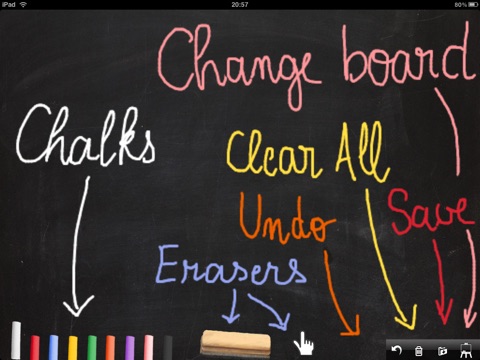 iPad 20:57 80%
Change board
Chalks
Clear All
Undo
Save
Erasers